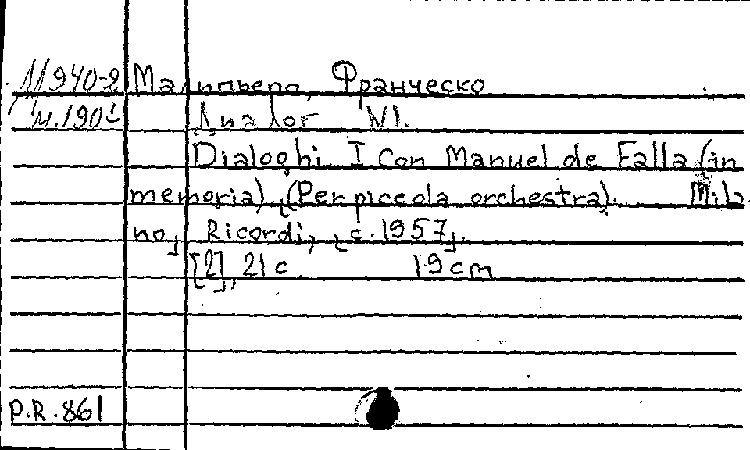 М940-2 Малипьеро, Франческо
М.190
Диалог №1.
Dialoghi I Con Manuel de Falla (in
memoria), (Per piccola orchestra). Mila
no, Ricordi, [c. 1957].
[2], 21 c 19 cm
P.R. 861